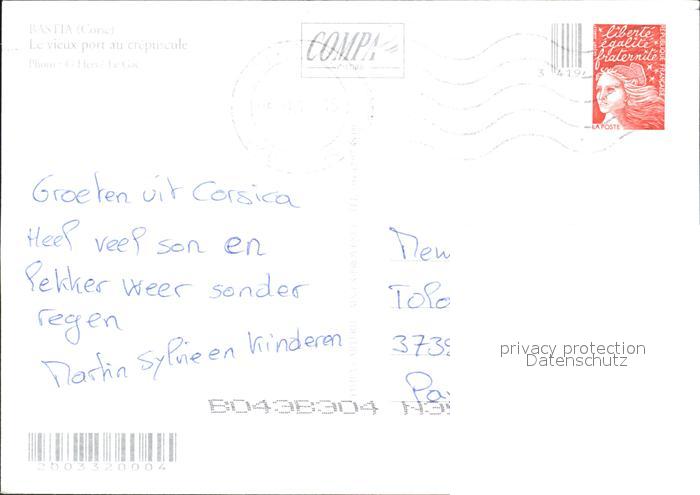 BASTIA (Corse)
Le vieux port au crépuscule
Photo : G. Hervé Le Gac
COMPA
3 419
liberté
égalité
fraternité
RÉPUBLIQUE FRANÇAISE
LA POSTE
Groeten uit Corsica
Heel veel son en
lekker weer sonder
regen
Martin Sylvie en kinderen
Mew
Tolo
3739
Pa
privacy protection
Datenschutz
BD43B3D4 N39
2003320004